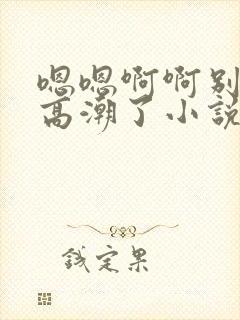 嗯嗯啊啊别
高潮了小说
钱定果